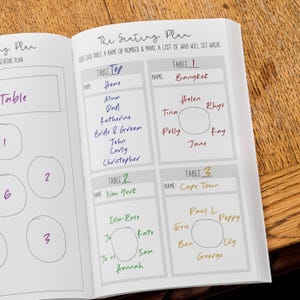 Plan
SEATING PLAN
Table
1
6
2
3
The Seating Plan
GIVE EACH TABLE A NAME OR NUMBER & MAKE A LIST OF WHO WILL SIT WHERE
TABLE Top
NAME: Home
Mum
Dad
Katherine
Bride & Groom
John
Carly
Christopher
TABLE 1
NAME: Bangkok
Helen
Tina
Rhys
Polly
Kay
Jane
TABLE 2
NAME: New York
Isla-Rose
Kate
Sam
Hannah
TABLE 3
NAME: Cape Town
Paul L
Poppy
Evie
Ben
Lily
George